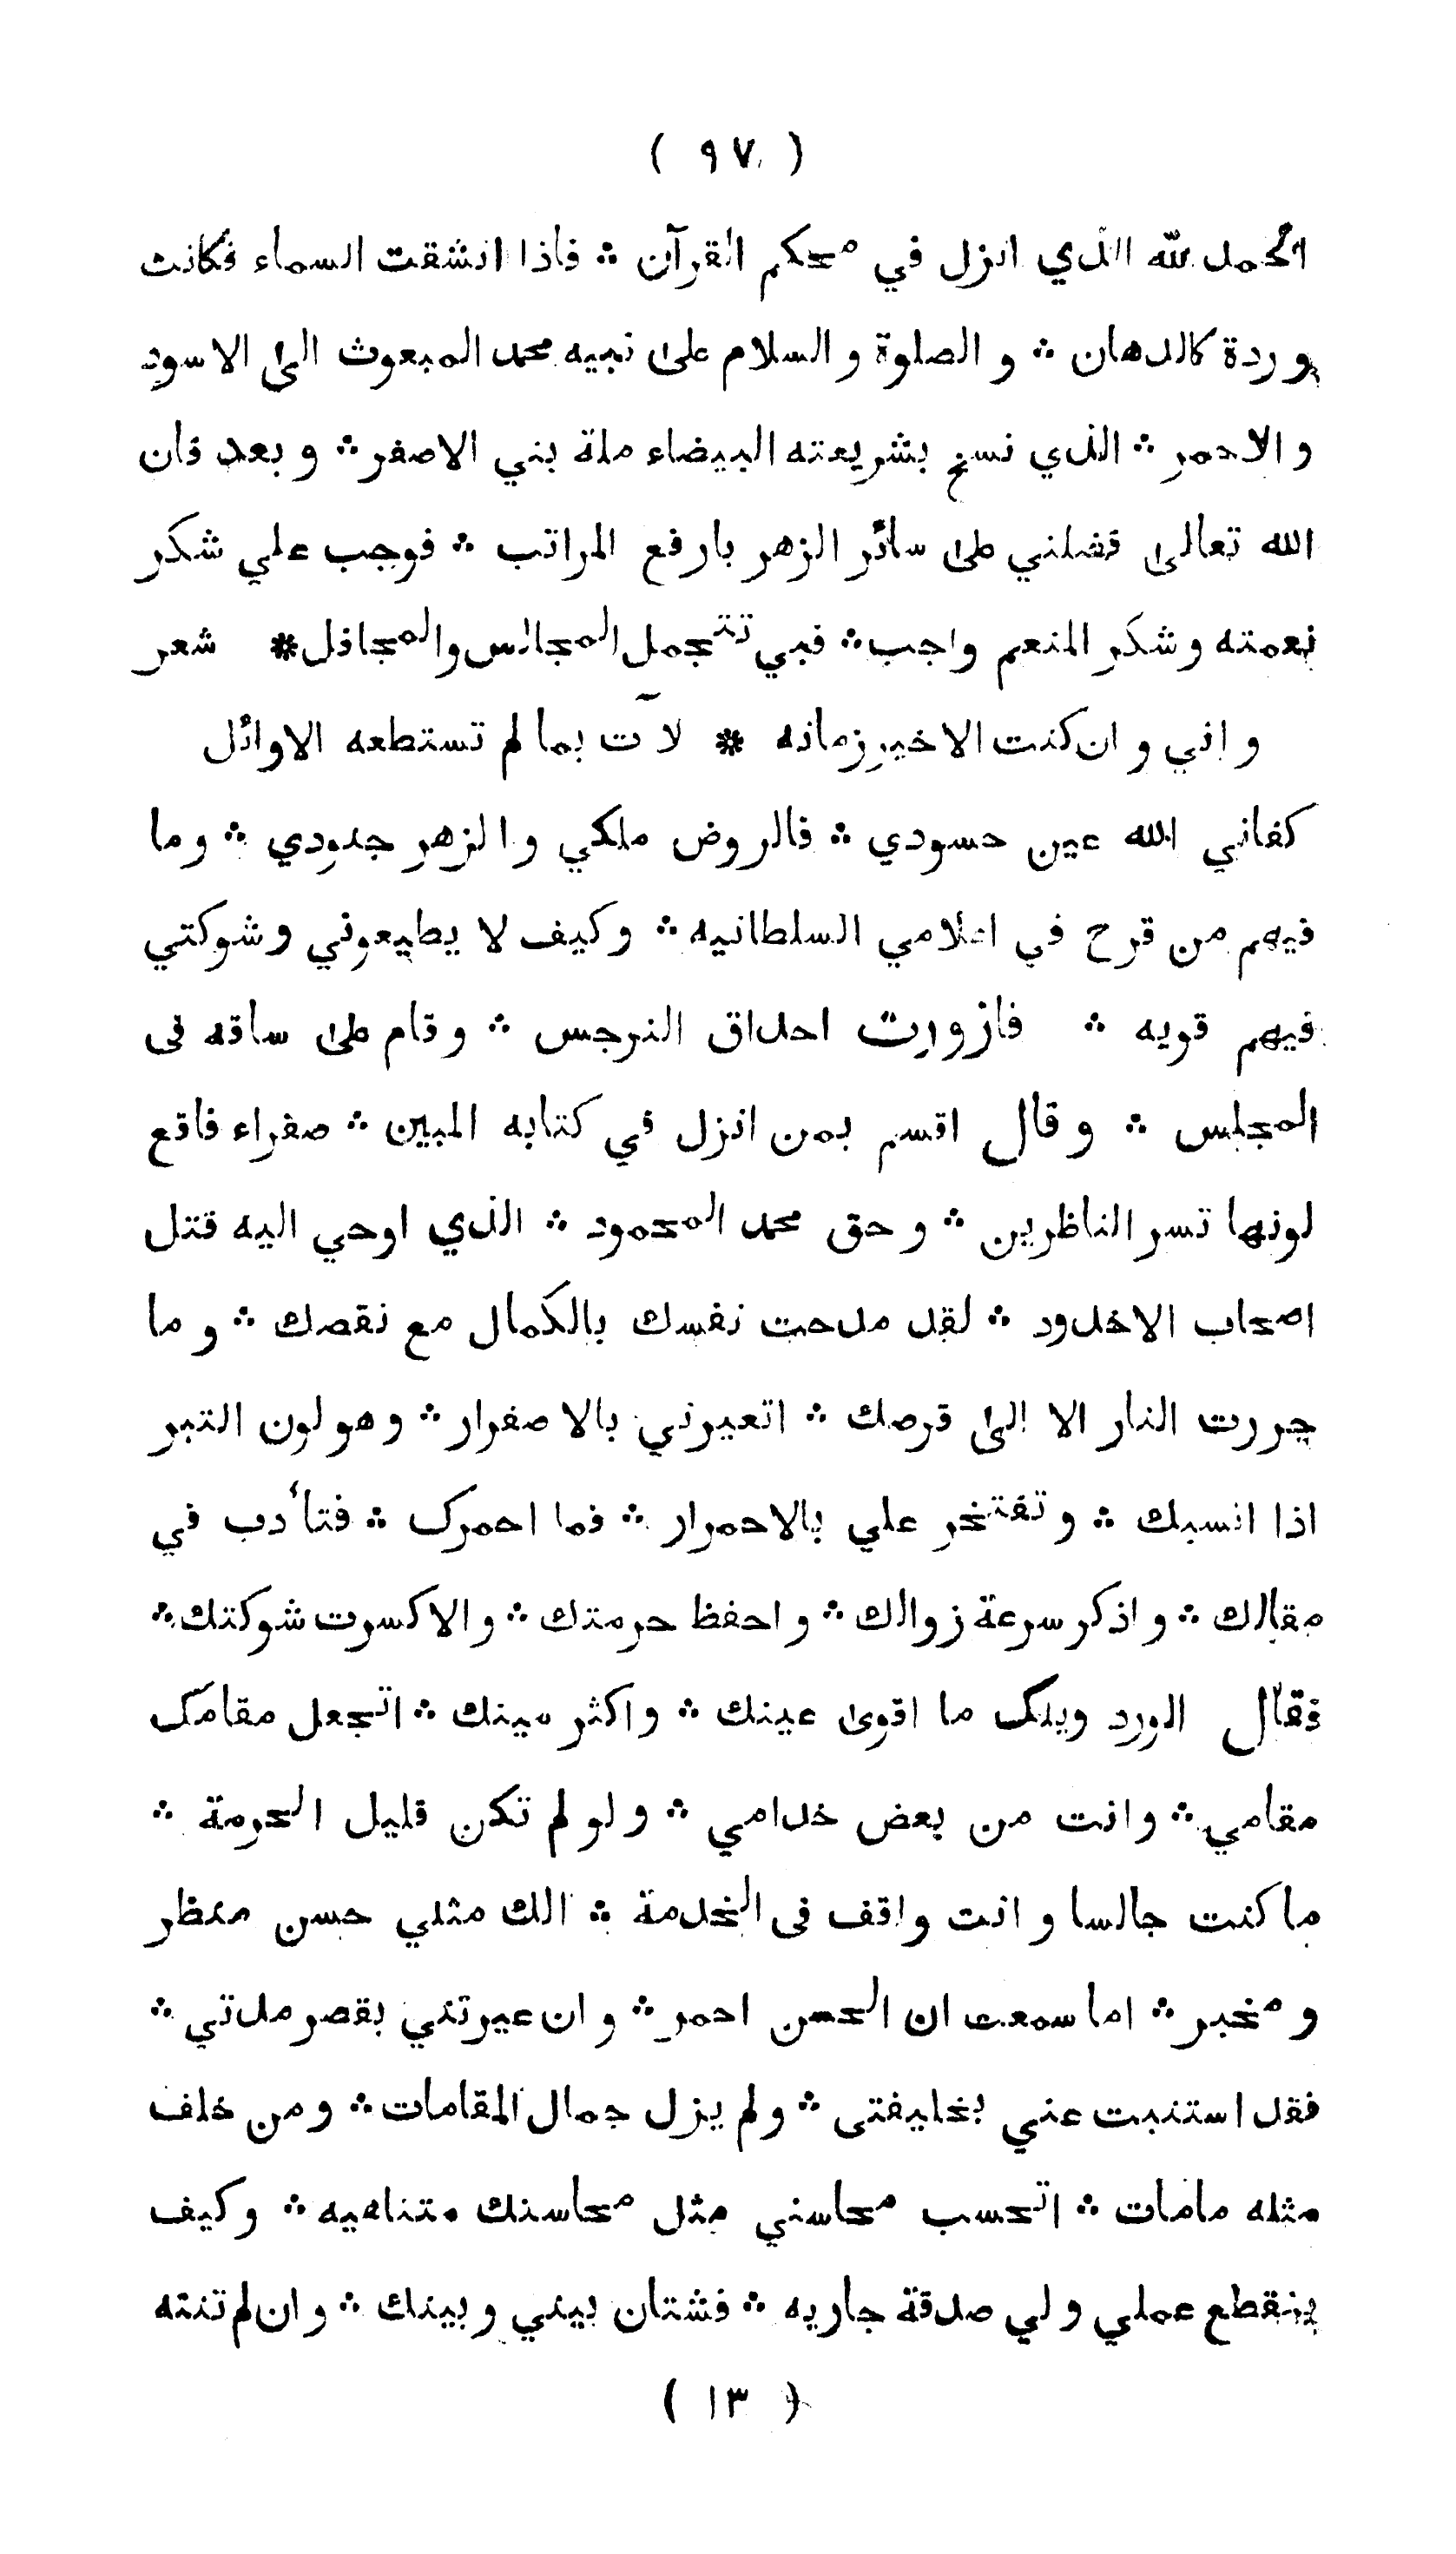 ( ٩٧ )
الحمد لله الذي انزل في محكم القرآن ∴ فاذا انشقت السماء فكانت
وردة كالدهان ∴ و الصلوة و السلام على نبيه محمد المبعوث الى الاسود
و الاحمر ∴ الذي نسخ بشريعته البيضاء ملة بني الاصفر ∴ و بعد فان
الله تعالى فضلني على سائر الزهر بارفع المراتب ∴ فوجب علي شكر
نعمته و شكر المنعم واجب ∴ فبي تتجمل المجالس والمحافل * شعر
و اني و ان كنت الاخير زمانه * لآت بما لم تستطعه الاوائل
كفاني الله عين حسودي ∴ فالروض ملكي و الزهر جنودي ∴ وما
فيهم من قرح في اعلامي السلطانيه ∴ وكيف لا يطيعوني وشوكتي
فيهم قويه ∴ فازورت احداق النرجس ∴ وقام على ساقه فى
المجلس ∴ وقال اقسم بمن انزل في كتابه المبين ∴ صفراء فاقع
لونها تسر الناظرين ∴ و حق محمد المحمود ∴ الذي اوحي اليه قتل
اصحاب الاخدود ∴ لقد مدحت نفسك بالكمال مع نقصك ∴ و ما
جررت النار الا الى قرصك ∴ اتعيرني بالاصفرار ∴ وهو لون التبر
اذا انسبك ∴ و تفتخر علي بالاحمرار ∴ فما احمرك ∴ فتأدب في
مقالك ∴ و اذكر سرعة زوالك ∴ و احفظ حرمتك ∴ و الا كسرت شوكتك ∴
فقال الورد ويلك ما اقوى عينك ∴ و اكثر مينك ∴ اتجعل مقامك
مقامي ∴ وانت من بعض خدامي ∴ ولو لم تكن قليل الحرمة ∴
ما كنت جالسا و انت واقف فى الخدمة ∴ الك مثلي حسن منظر
و مخبر ∴ اما سمعت ان الحسن احمر ∴ و ان عيرتني بقصر مدتي ∴
فقد استنبت عني بخليفتى ∴ ولم يزل جمال المقامات ∴ ومن خلف
مثله مامات ∴ اتحسب محاسني مثل محاسنك متناهيه ∴ وكيف
ينقطع عملي ولي صدقة جاريه ∴ فشتان بيني وبينك ∴ وان لم تنته
( ١٣ )